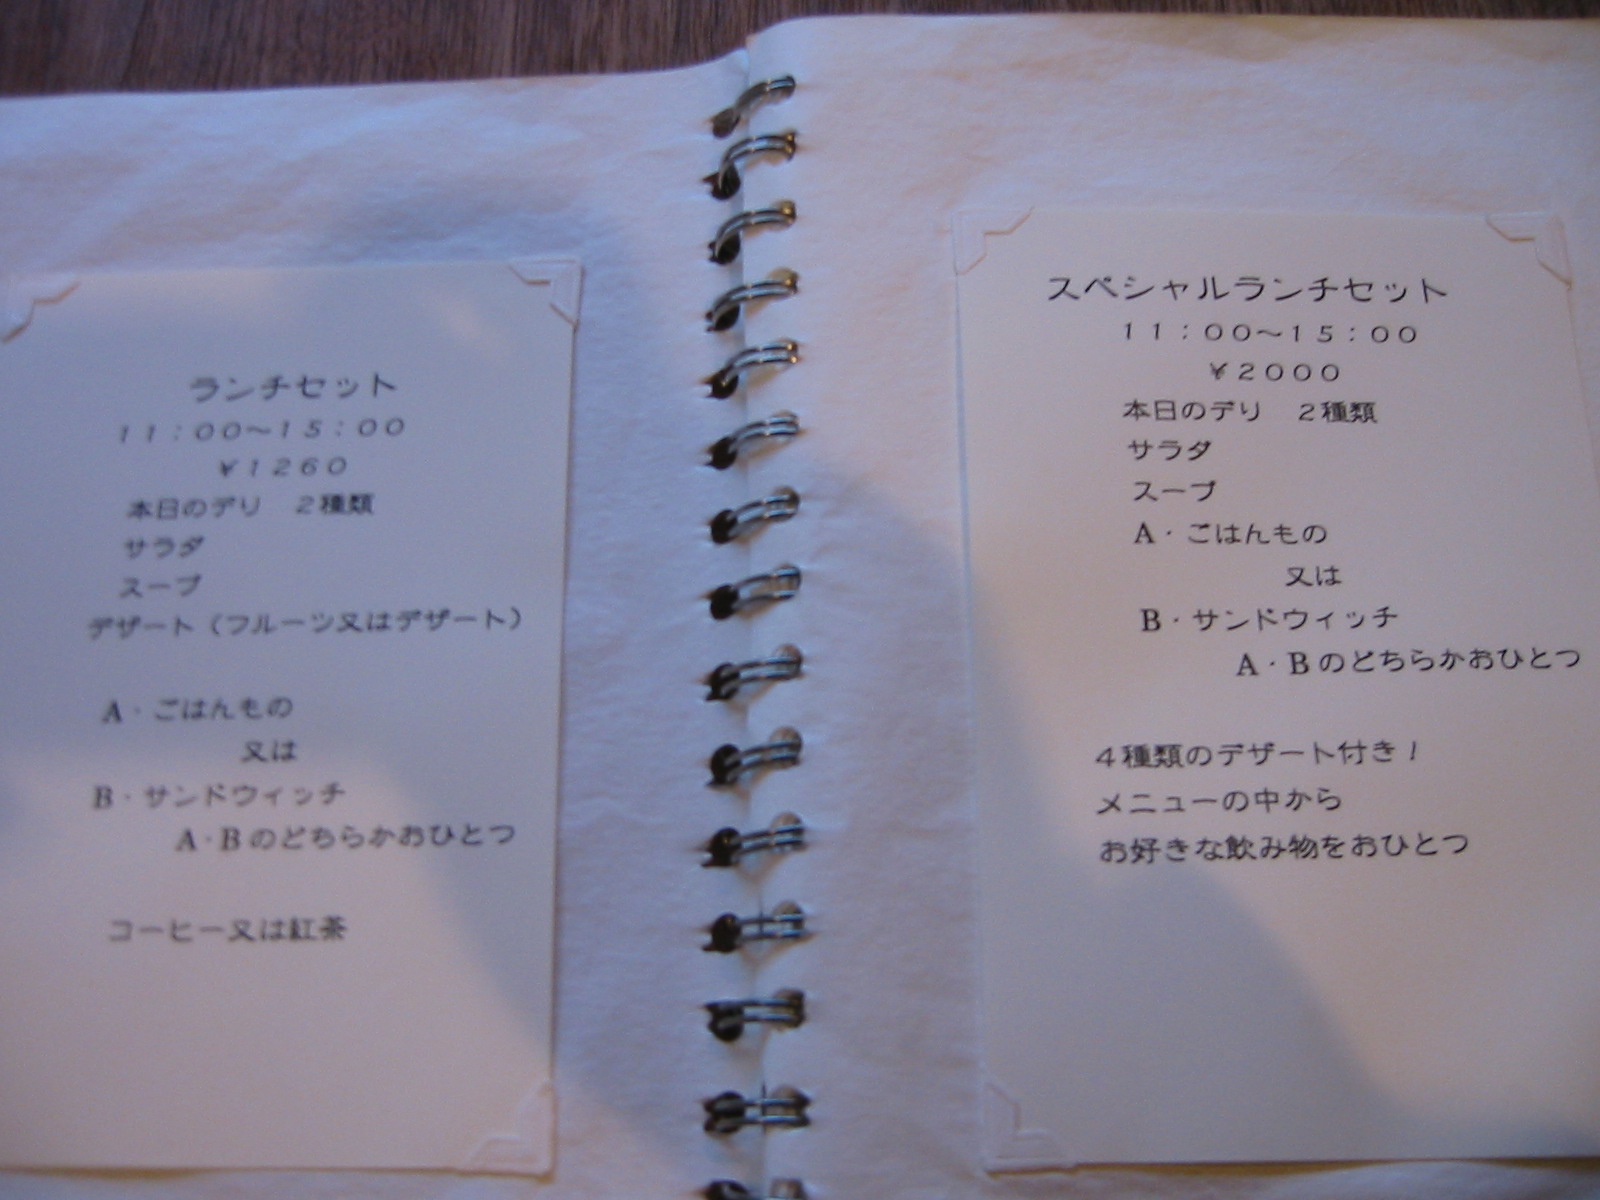 ランチセット
11:00〜15:00
¥1260
本日のデリ　2種類
サラダ
スープ
デザート（フルーツ又はデザート）
A・ごはんもの
又は
B・サンドウィッチ
A・Bのどちらかおひとつ
コーヒー又は紅茶
スペシャルランチセット
11:00〜15:00
¥2000
本日のデリ　2種類
サラダ
スープ
A・ごはんもの
又は
B・サンドウィッチ
A・Bのどちらかおひとつ
4種類のデザート付き！
メニューの中から
お好きな飲み物をおひとつ